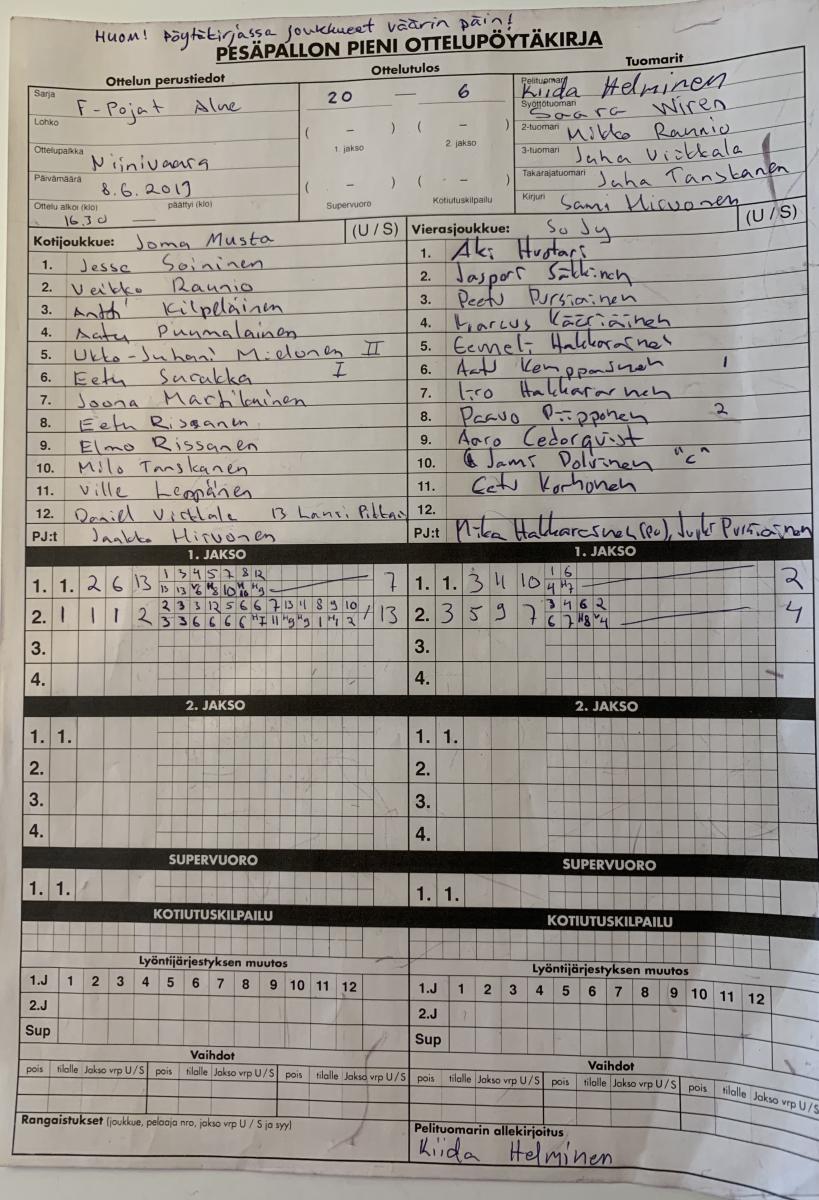 HUOM! Pöytäkirjassa joukkueet väärin päin!
PESÄPALLON PIENI OTTELUPÖYTÄKIRJA
Ottelun perustiedot
Sarja F-Pojat Alue
Lohko
Ottelupaikka Niinivaara
Päivämäärä 8.6.2019
Ottelu alkoi (klo) päättyi (klo)
16.30 —
Ottelutulos
20 — 6
( – ) ( – )
1. jakso 2. jakso
( – ) ( – )
Supervuoro Kotiutuskilpailu
Tuomarit
Pelituomari Kiida Helminen
Syöttötuomari Saara Wiren
2-tuomari Mikko Raunio
3-tuomari Juha Viikkala
Takarajatuomari Juha Tanskanen
Kirjuri Sami Hirvonen
Kotijoukkue: Joma Musta (U / S)
1. Jesse Soininen
2. Veikko Raunio
3. Antti Kilpeläinen
4. Aatu Puumalainen
5. Ukko-Juhani Mielonen II
6. Eetu Surakka I
7. Joona Martikainen
8. Eetu Rissanen
9. Elmo Rissanen
10. Milo Tanskanen
11. Ville Leppänen
12. Daniel 13 Lauri
PJ:t Jaakko Hirvonen
Vierasjoukkue: SoJy (U / S)
1. Aki Huotari
2. Jasperi
3. Peetu Pursiainen
4. Marcus Kääriäinen
5. Eemeli Hakkarainen
6. Aatu Kemppainen 1
7. Iiro Hakkarainen
8. Paavo Piipponen 2
9. Aaro Cedorqvist
10. Jami "C"
11. Eetu Korhonen
12.
PJ:t Mika Hakkarainen (PJ), Pursiainen
1. JAKSO
1. 1. 2 6 13 1 3 4 5 7 8 12 7
2. 1 1 1 2 2 3 3 12 5 6 6 7 13 11 8 9 10 13
3.
4.
1. JAKSO
1. 1. 3 11 10 1 6 2
4 H7
2. 3 5 9 7 3 4 6 2 4
6 7 H8 V4
3.
4.
2. JAKSO
1. 1.
2.
3.
4.
2. JAKSO
1. 1.
2.
3.
4.
SUPERVUORO
1. 1.
SUPERVUORO
1. 1.
KOTIUTUSKILPAILU
KOTIUTUSKILPAILU
Lyöntijärjestyksen muutos
1.J 1 2 3 4 5 6 7 8 9 10 11 12
2.J
Sup
Lyöntijärjestyksen muutos
1.J 1 2 3 4 5 6 7 8 9 10 11 12
2.J
Sup
Vaihdot
pois tilalle Jakso vrp U / S pois tilalle Jakso vrp U / S pois tilalle Jakso vrp U / S
Vaihdot
pois tilalle Jakso vrp U / S pois tilalle Jakso vrp U / S pois tilalle Jakso vrp U / S
Rangaistukset (joukkue, pelaaja nro, jakso vrp U / S ja syy)
Pelituomarin allekirjoitus
Kiida Helminen